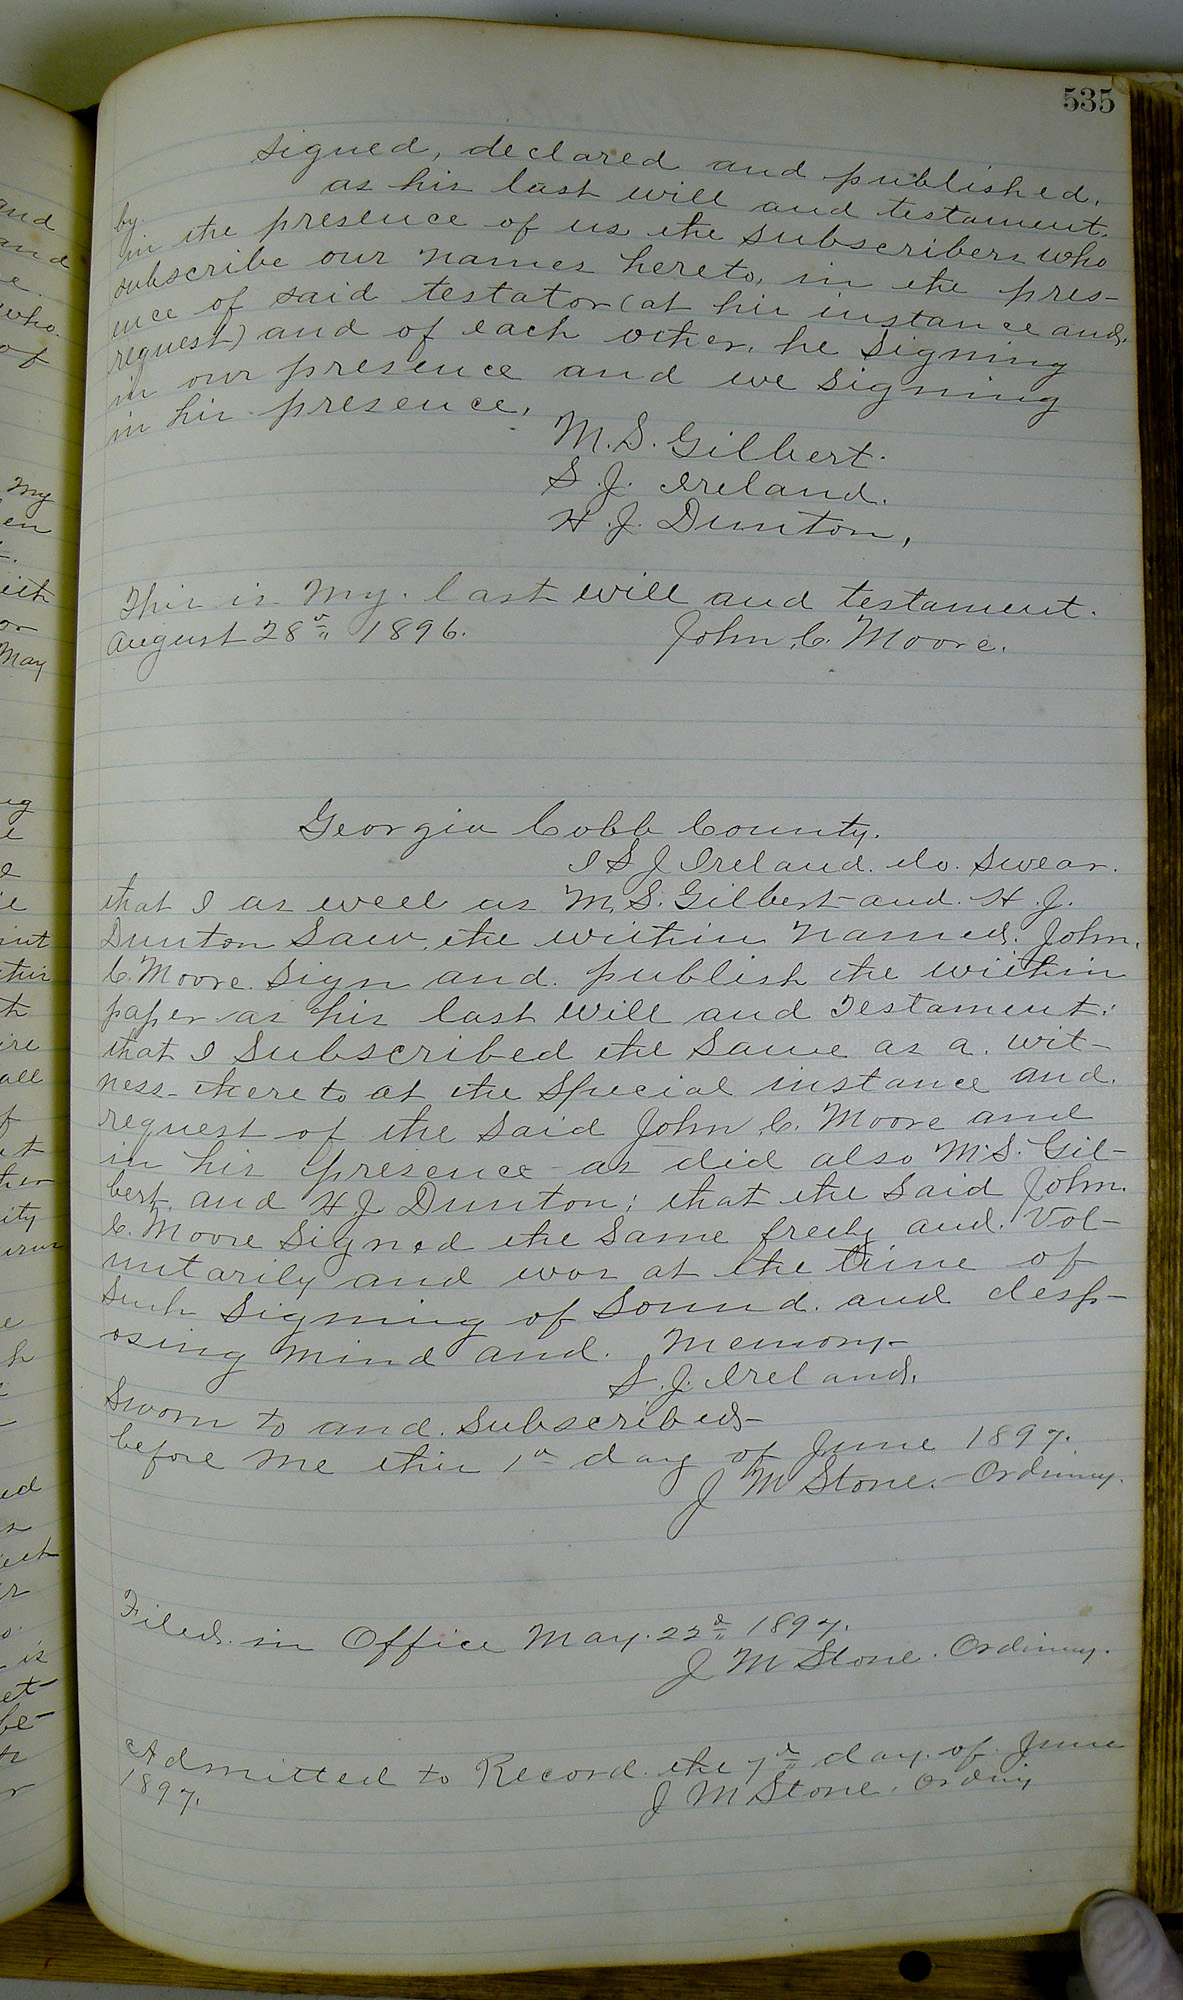 535
signed, declared and published,
by as his last will and testament.
in the presence of us the subscribers who
subscribe our names hereto, in the pres-
ence of said testator (at his instance and
request) and of each other, he signing
in our presence and we signing
in his presence,
M. S. Gilbert.
S. J. Ireland.
H. J. Dunton,
This is my last will and testament.
August 28" 1896. John C. Moore.
Georgia Cobb County.
I S J Ireland do swear.
that I as well as M. S. Gilbert and H. J.
Dunton saw, the within named John,
C. Moore sign and publish the within
paper as his last will and Testament:
that I Subscribed the same as a wit-
ness thereto at the special instance and
request of the said John C. Moore and
in his presence as did also M. S. Gil-
bert, and H. J. Dunton; that the said John
C. Moore signed the same freely and vol-
untarily and was at the time of
such signing of sound and desp-
osing mind and memory-
S. J. Ireland,
Sworn to and Subscribed
before me this 1st day of June 1897.
J M Stone - Ordinary.
Filed in Office May 22d 1897.
J M Stone. Ordinary.
Admitted to Record the 7th day of June
1897. J M Stone. Ordiny
and
and
who
of
My
en
May
all
ity
is
be-